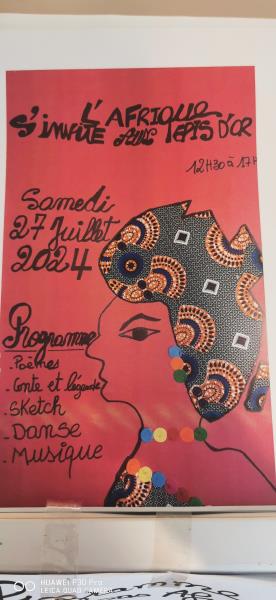 L'AFRIQUE
S'INVITE AUX EPIS D'OR
12H30 à 17H
Samedi
27 Juillet
2024
Programme
- Poèmes
- Conte et légende
- Sketch
- Danse
- Musique
HUAWEI P30 Pro
LEICA QUAD CAMERA